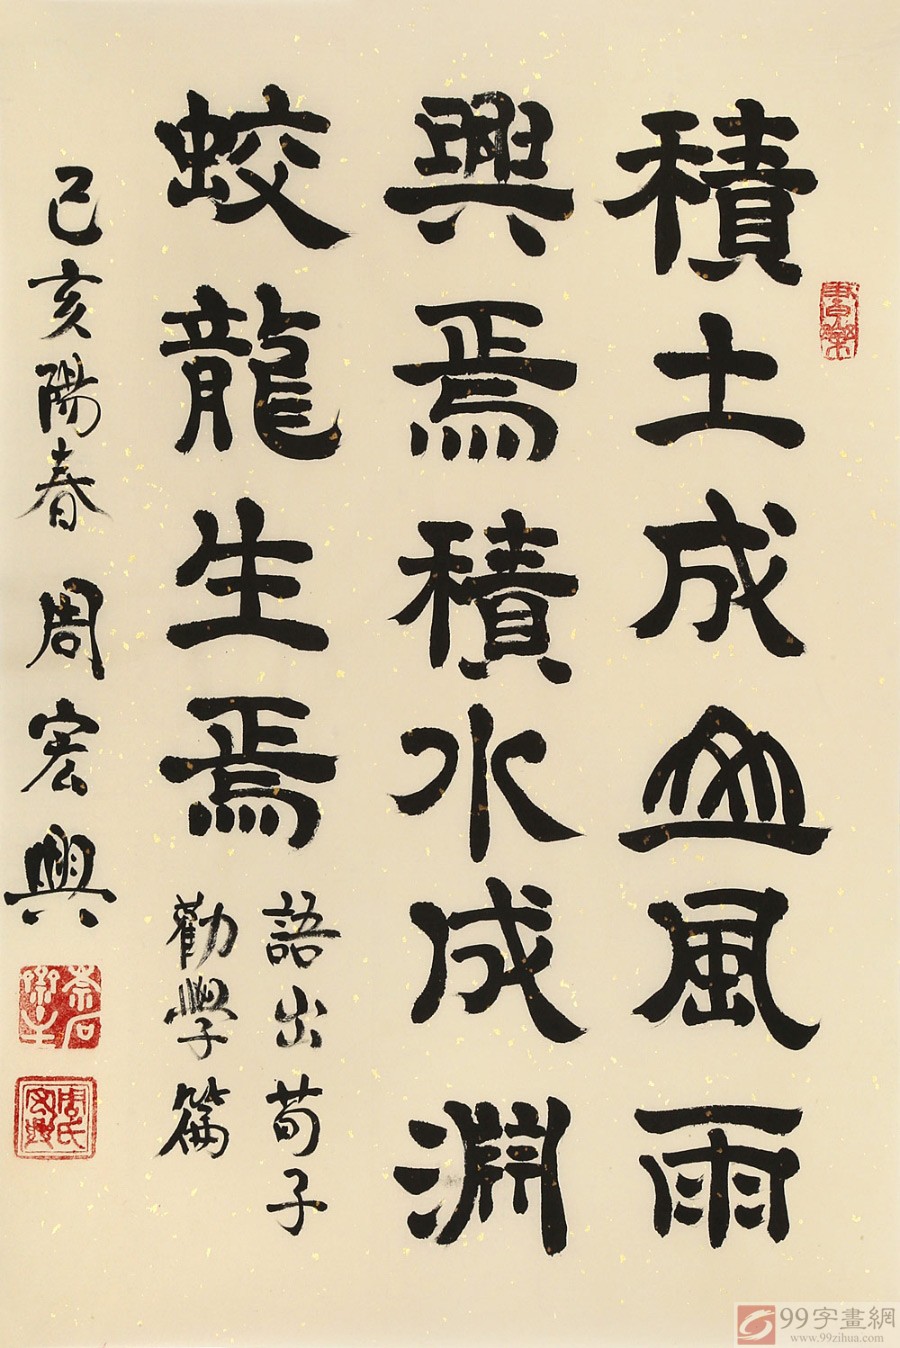 積土成山風雨
興焉積水成淵
蛟龍生焉
語出荀子
勸學篇
己亥陽春 周宏興
99字畫網
www.99zihua.com